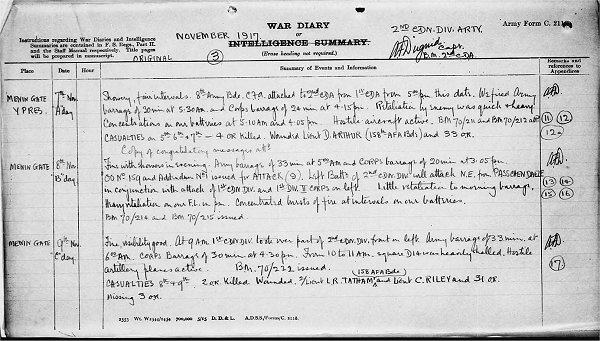 Instructions regarding War Diaries and Intelligence
Summaries are contained in F. S. Regs., Part II.
and the Staff Manual respectively. Title pages
will be prepared in manuscript.
ORIGINAL
NOVEMBER 1917.
WAR DIARY
or
INTELLIGENCE SUMMARY.
(Erase heading not required.)
3
2ND CDN. DIV. ARTY.
Capt.
B.M. 2nd CDA.
Army Form C. 211
Place Date Hour Summary of Events and Information Remarks and references to Appendices
MENIN GATE 7th Nov. Showery, fair intervals. 8th Army Bde. C.F.A. attached to 2nd CDA from 1st CDA from 5pm this date. We fired Army
YPRES. A day. barrage of 20 min at 5.30 am and Corps barrage of 24 min at 4.15 pm. Retaliation by enemy was quick & heavy
Concentrations on our batteries at 5.10 am and 4.05 pm. Hostile aircraft active. BM 70/211 and BM 70/212 11 12
CASUALTIES on 5th 6th & 7th - 4 OR Killed. Wounded Lieut D. ARTHUR (158th AFA Bde) and 33 OR. 12a
Copy of congratulatory messages att?
MENIN GATE 8th Nov. Fine with showers in evening. Army barrage of 33 min at 5th AM and CORPS barrage of 20 min at 3.05 pm.
'B' day. OO No 159 and Addendum No 1 issued for ATTACK (9). Left Battn of 2nd CDN. DIV will attack N.E. from PASSCHENDAELE 13 14
in conjunction with attack of 1st CDN. DIV and 1st DIV. II CORPS on left. Little retaliation to morning barrage, 15 16
Heavy retaliation on our F.L. in pm. Concentrated bursts of fire at intervals on our batteries.
BM 70/214 and BM 70/215 issued.
MENIN GATE 9th Nov. Fine, visibility good. At 9 AM 1st CDN. DIV. took over part of 2nd CDN. DIV. front on left. Army barrage of 33 min. at
C day. 6th AM. CORPS Barrage of 30 min at 4.30 pm. From 10 to 11 am. square D14 was heavily shelled. Hostile
artillery planes active. BM. 70/222 issued. 17
CASUALTIES 8th & 9th. 2 OR. Killed. Wounded. 2/Lieut L.R. TATHAM (158 AFA Bde) and Lieut C. RILEY and 31 OR.
Missing 3 OR.
D. D. & L. A.D.S.S./Forms/C. 2118.